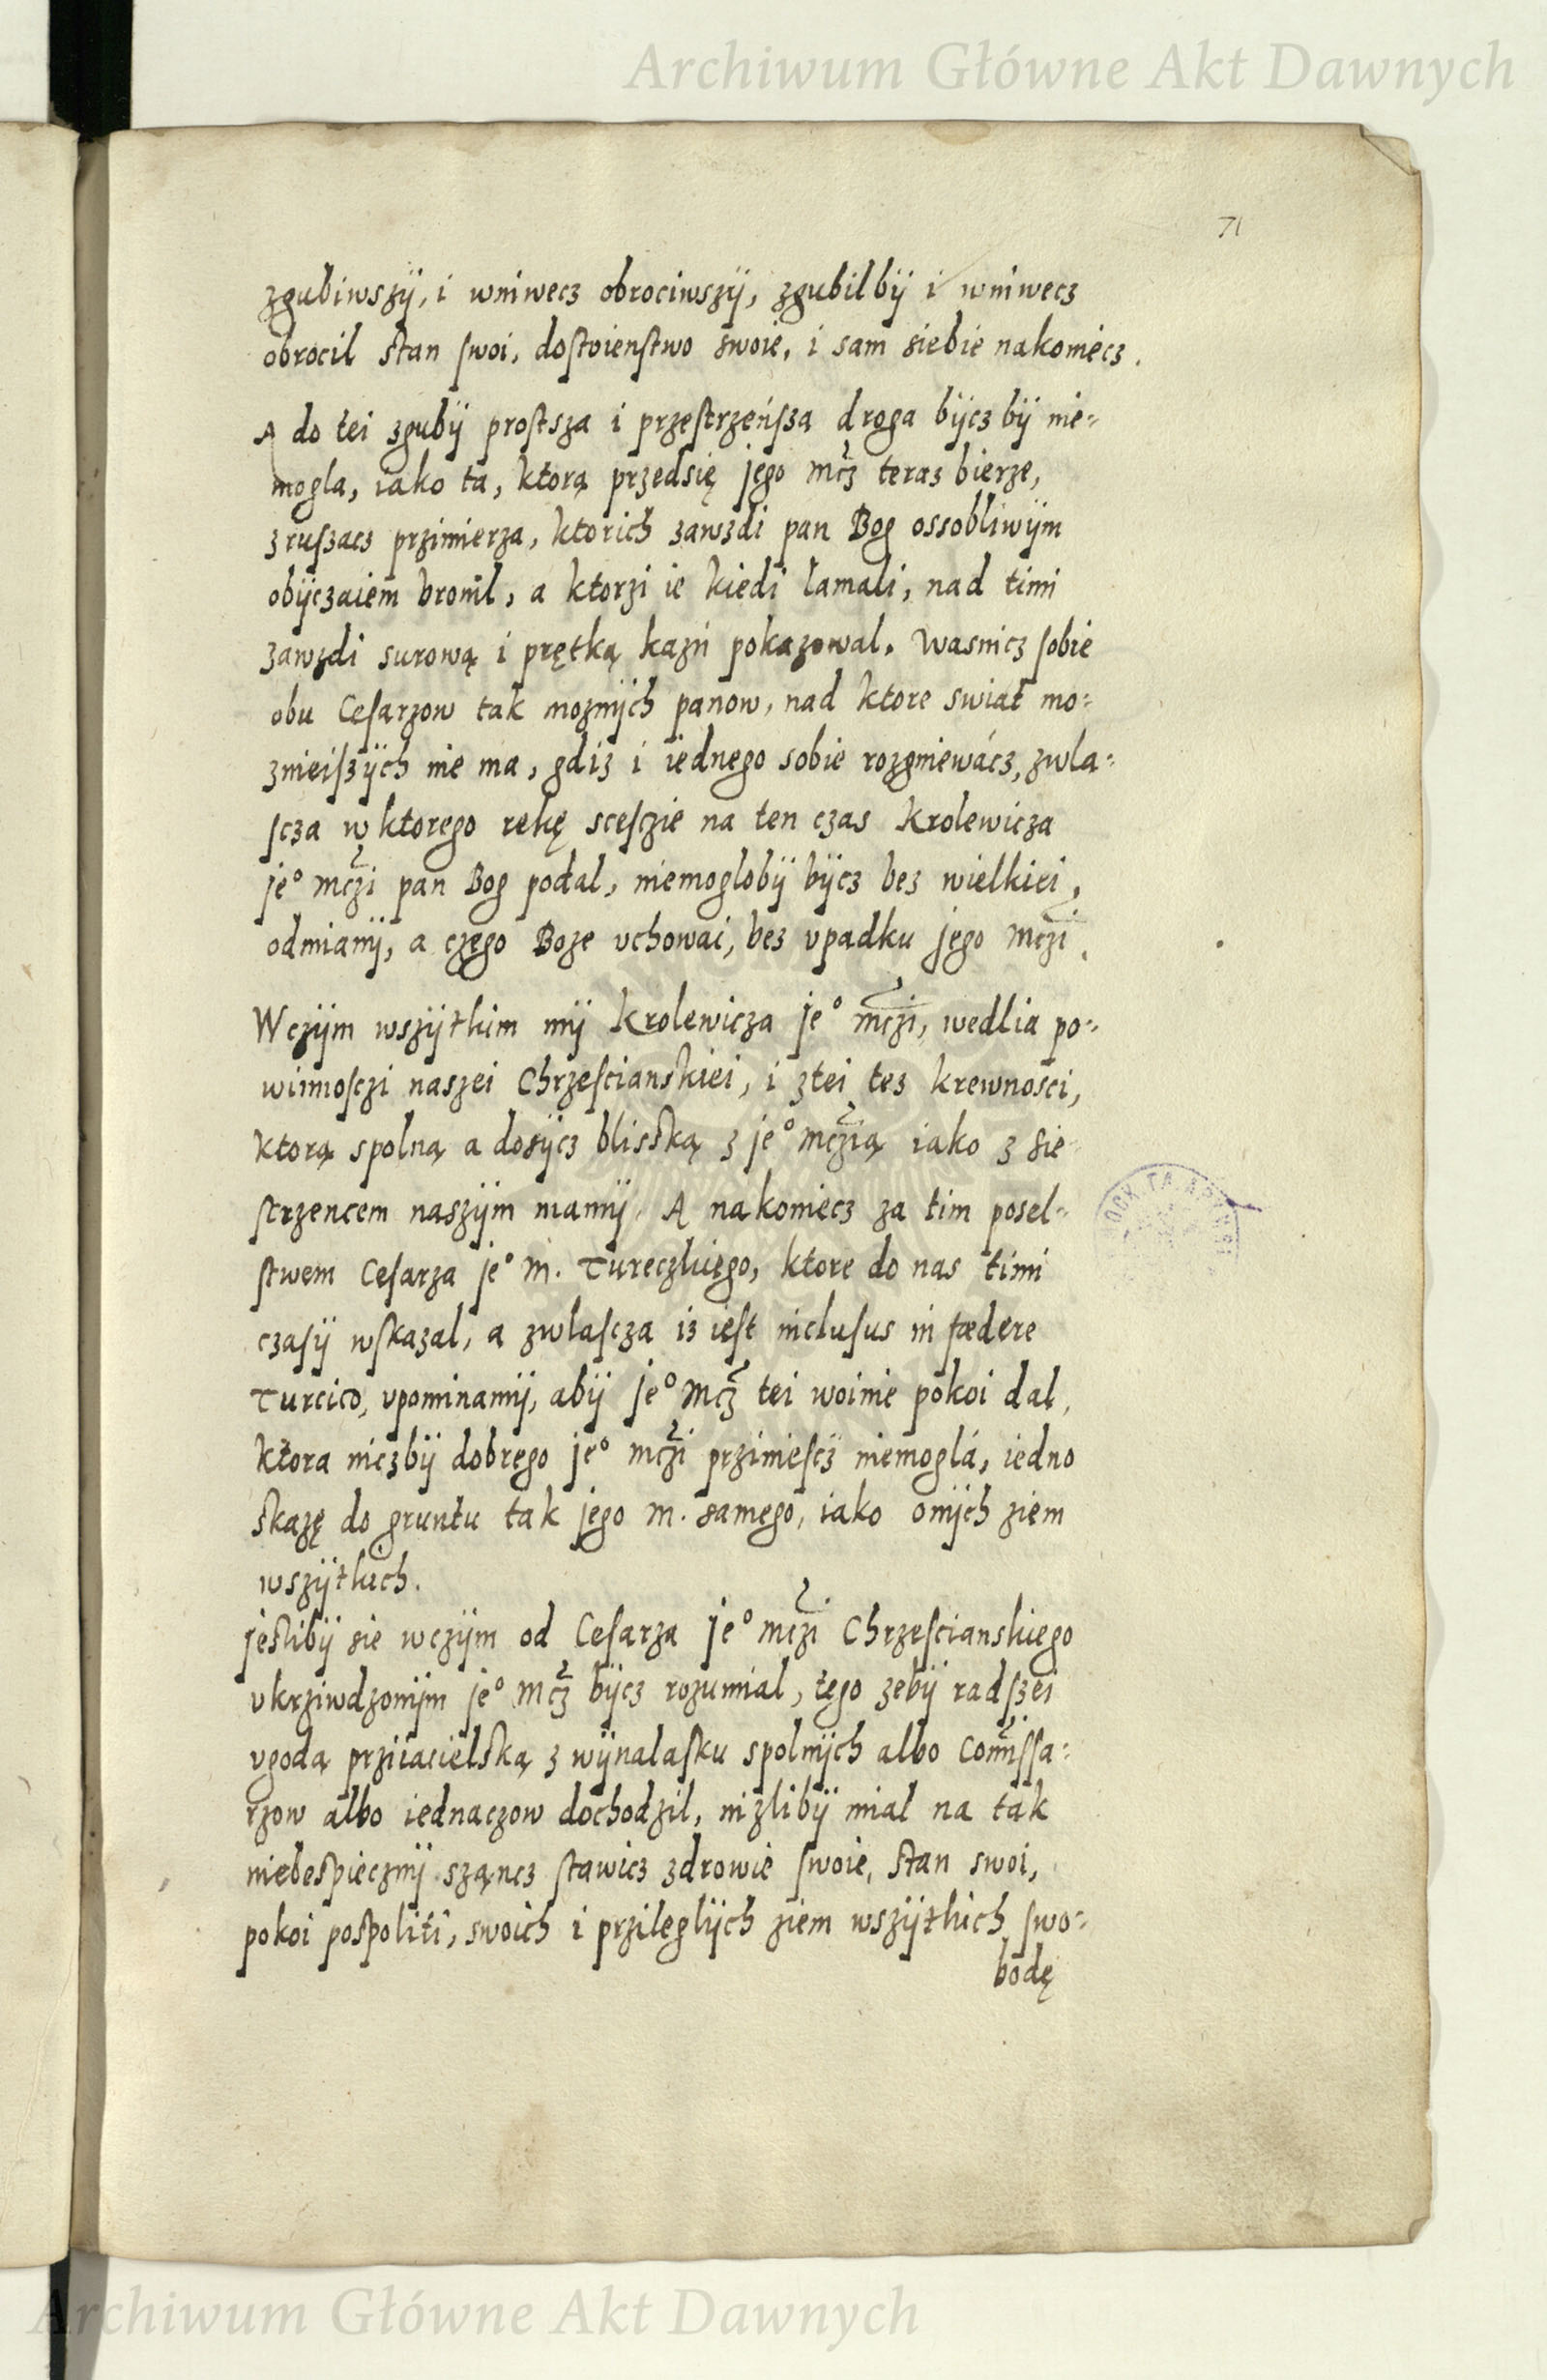 Archiwum Główne Akt Dawnych
71
zgubiwszÿ, i wniwecz obrociwszÿ, zgubilbÿ i wniwecz
obrocil stan swoi, dostoienstwo swoie, i sam siebie nakoniecz.
A do tei zgubÿ prostsza i przestrzeńsza droga bÿcz bÿ nie=
mogla, iako ta, ktorą przedsię jego mcz teraz bierze,
zruszacz przimierza, ktorich zawzdi pan Bog ossobliwÿm
obÿczaiem bronil, a ktorzi ie kiedi lamali, nad timi
zawzdi surową i prętką kazń pokazowal. Wasnicz sobie
obu Cesarzow tak moznÿch panow, nad ktore swiat mo=
znieiszÿch nie ma, gdiz i iednego sobie rozgniewácz, zwla=
scza w ktorego rekę sceszie na ten czas Krolewicza
je° mczi pan Bog podal, niemoglobÿ bÿcz bez wielkiei,
odmianÿ, a czego Boze uchowai, bez upadku jego mczi.
Wczÿm wszÿtkim mÿ Krolewicza je° mczi, wedlia po=
winnosczi naszei Chrzescianskiei, i ztei tez krewnosci,
ktorą spolną a dosÿcz blisską z je° mczią iako z sie
strzencem naszÿm mamÿ. A nakoniecz za tim posel=
stwem Cesarza je° m. Tureczkiego, ktore do nas timi
czasÿ wskazal, a zwlascza iz iest inclusus in fœdere
Turcico, upominamÿ, abÿ je° Mcz tei woinie pokoi dal,
ktora niczbÿ dobrego je° mczi prziniescz niemoglá, iedno
skazę do gruntu tak jego m. samego, iako onÿch ziem
wszÿtkich.
jestlibÿ sie wczÿm od Cesarza je° mczi Chrzescianskiego
ukrziwdzonÿm je° Mcz bÿcz rozumial, tego zebÿ radszei
ugodą prziiacielską z wÿnalasku spolnÿch albo Comissa=
rzow albo iednaczow dochodzil, nizlibÿ mial na tak
niebespiecznÿ sząncz stawicz zdrowie swoie, stan swoi,
pokoi pospoliti, swoich i przileglÿch ziem wszÿtkich swo=
bodę
Archiwum Główne Akt Dawnych